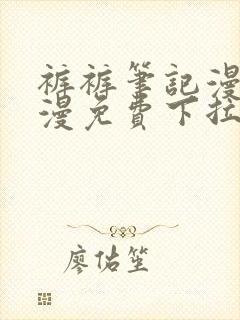 裤裤筆記漫
漫免費下拉
廖佑笙